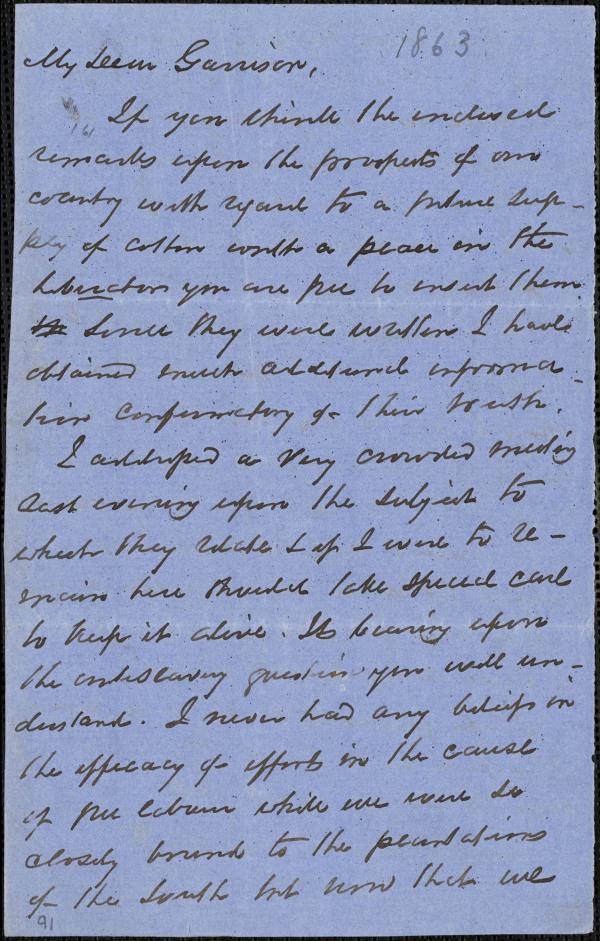 1863
My dear Garrison,
If you think the enclosed
remarks upon the prospects of our
country with regard to a future sup-
ply of cotton worth a place in the
Liberator you are free to insert them.
Since they were written I have
obtained much additional informa-
tion confirmatory of their truth.
I addressed a very crowded meeting
last evening upon the subject to
which they relate & if I were to re-
main here should take special care
to keep it alive. Its bearing upon
the antislavery question you will un-
derstand. I never had any beliefs in
the efficacy of efforts in the cause
of free labour while we were so
closely bound to the plantations
of the South but now that we
91